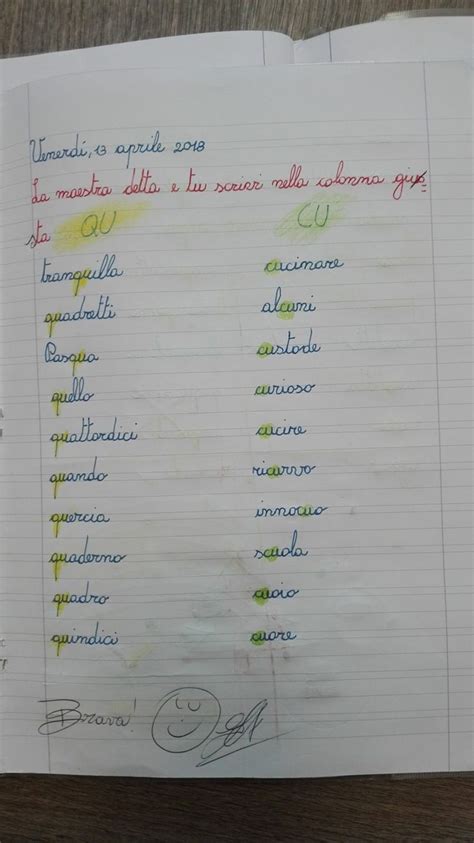 Venerdí, 13 aprile 2018
La maestra detta e tu scrivi nella colonna giu-
sta QU CU
tranquilla cucinare
quadretti alcuni
Pasqua custode
quello curioso
quattordici cucire
quando ricurvo
quercia innocuo
quaderno scuola
quadro cuoio
quindici cuore
Brava!